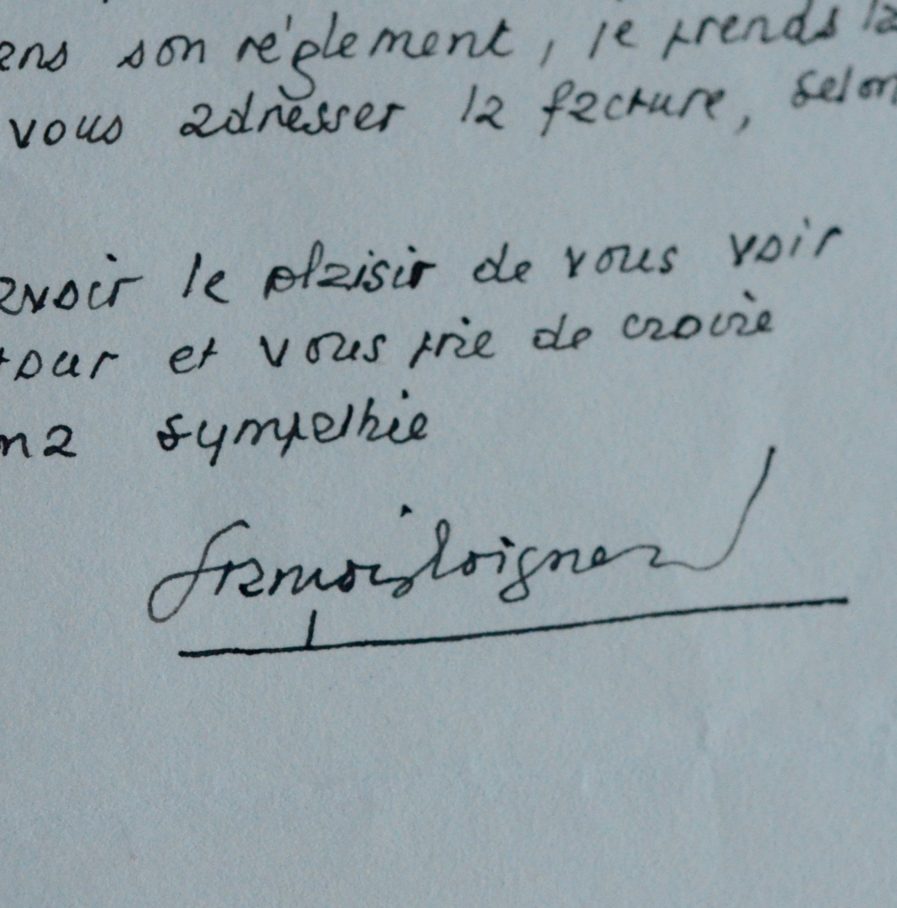 ens son réglement, je prends la
vous adresser la facture, selon
avoir le plaisir de vous voir
tour et vous prie de croire
ma sympathie
François